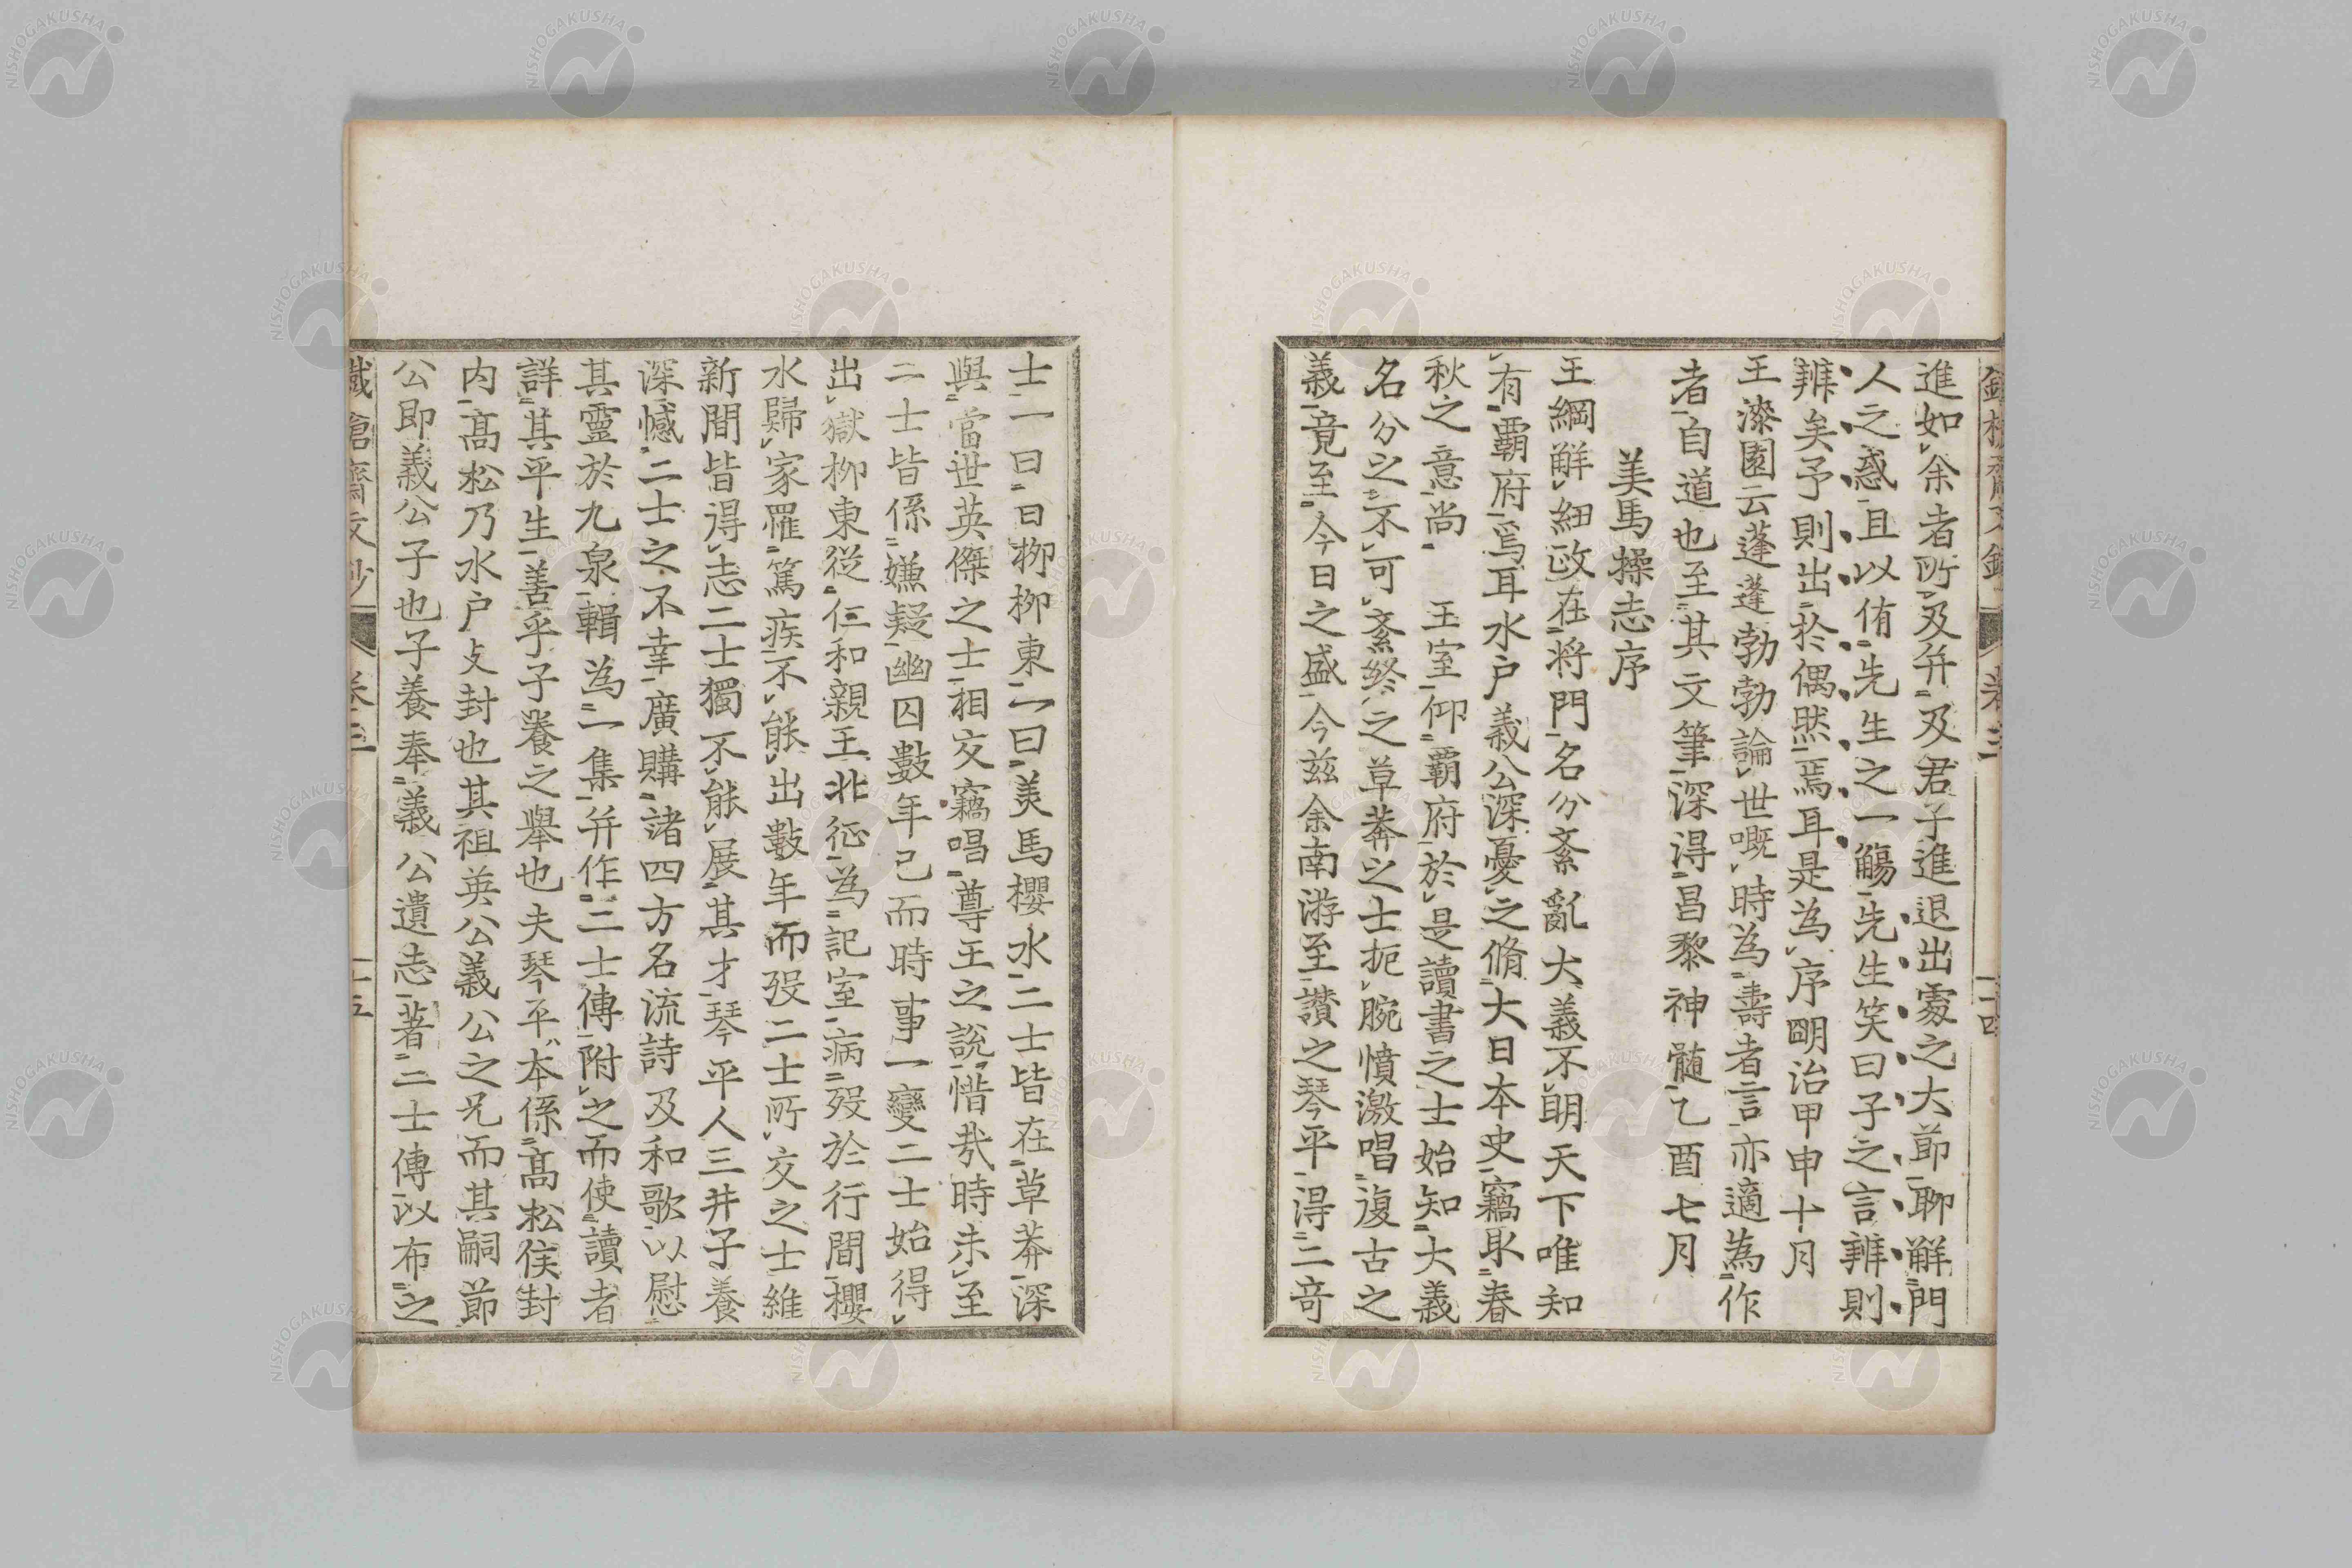 進如余者所及并及君子進退出處之大節聊解門
人之惑且以侑先生之一觴先生笑曰子之言辨則
辨矣予則出於偶然焉耳是為序明治甲申十月
王漆園云蓬蓬勃勃論世嘅時為壽者言亦適為作
者自道也至其文筆深得昌黎神髄乙酉七月
美馬操志序
王綱解紐政在将門名分紊亂大義不明天下唯知
有覇府焉耳水戶義公深憂之脩大日本史竊取春
秋之意尚王室仰覇府於是讀書之士始知大義
名分之不可紊終之草莽之士扼腕憤激唱復古之
義竟至今日之盛今茲余南游至讃之琴平得二奇
士一曰日栁栁東二曰美馬櫻水二士皆在草莽深
與當世英傑之士相交竊唱尊王之說惜哉時未至
二士皆係嫌疑幽囚數年已而時事一變二士始得
出獄栁東從仁和親王北征為記室病歿於行間櫻
水歸家罹篤疾不能出數年而歿二士所交之士維
新間皆得志二士獨不能展其才琴平人三井子養
深憾二士之不幸廣購諸四方名流詩及和歌以慰
其靈於九泉輯為一集并作二士傳附之而使讀者
詳其平生善乎子養之舉也夫琴平本係高松侯封
内高松乃水戶支封也其祖英公義公之兄而其嗣節
公即義公子也子養奉義公遺志著二士傳以布之
卷三
十五